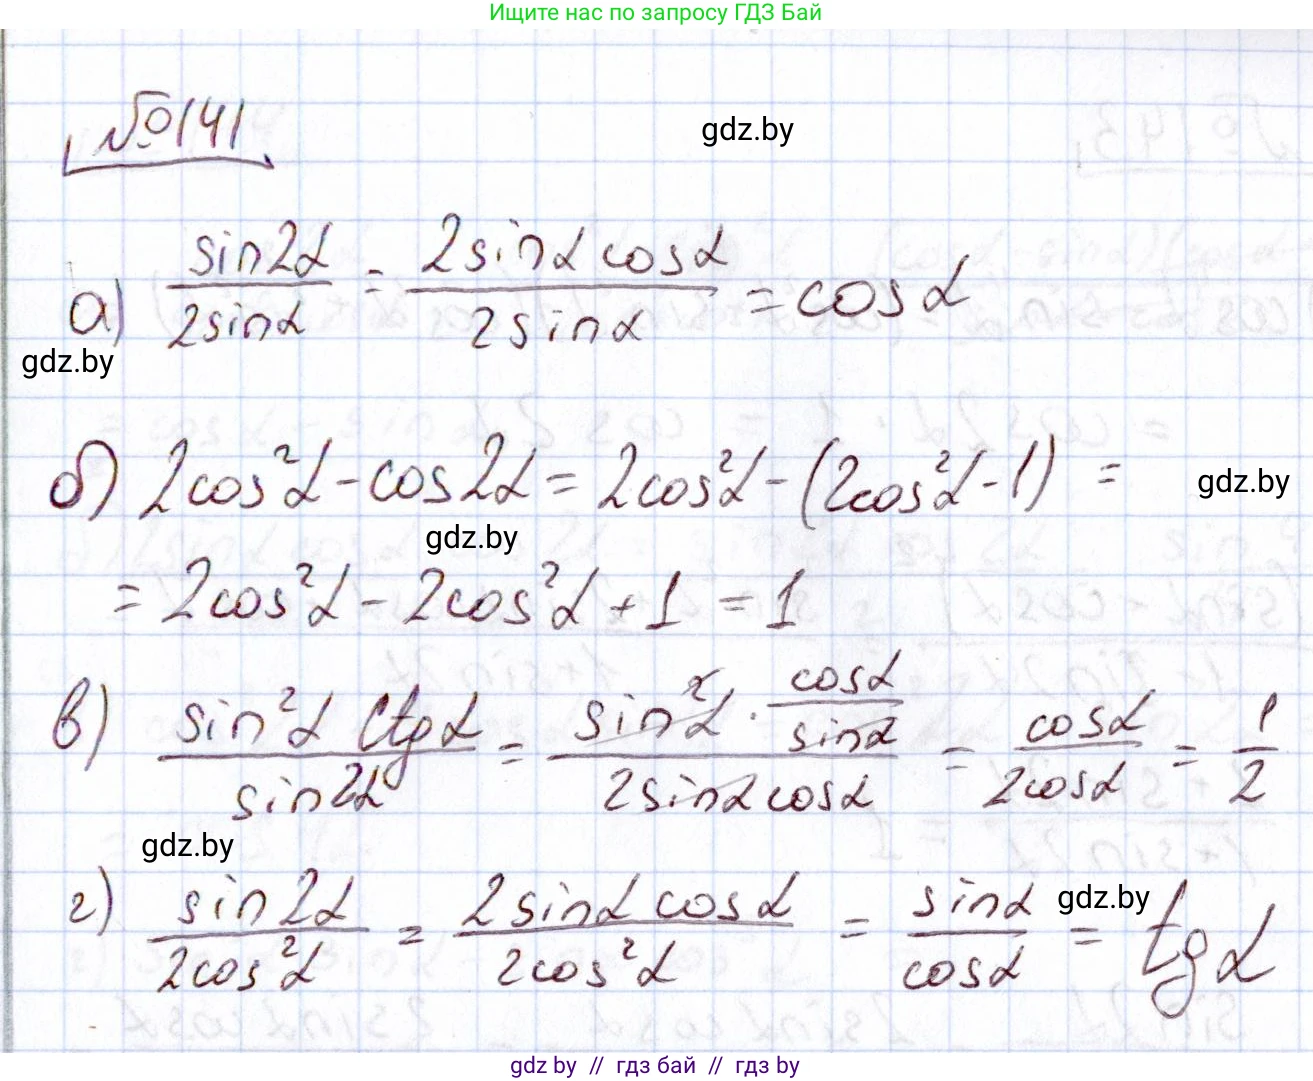 Ищите нас по запросу ГДЗ Бай
№141
gdz.by
а) sin2α/2sinα = 2sinα cosα/2sinα = cosα
gdz.by
б) 2cos²α - cos2α = 2cos²α - (2cos²α - 1) =
gdz.by
gdz.by
= 2cos²α - 2cos²α + 1 = 1
в) sin²α ctgα/sin2α = sin²α · cosα/sinα/2sinα cosα = cosα/2cosα = 1/2
gdz.by
г) sin2α/2cos²α = 2sinα cosα/2cos²α = sinα/cosα = tgα
gdz.by
gdz.by // гдз бай // гдз.by